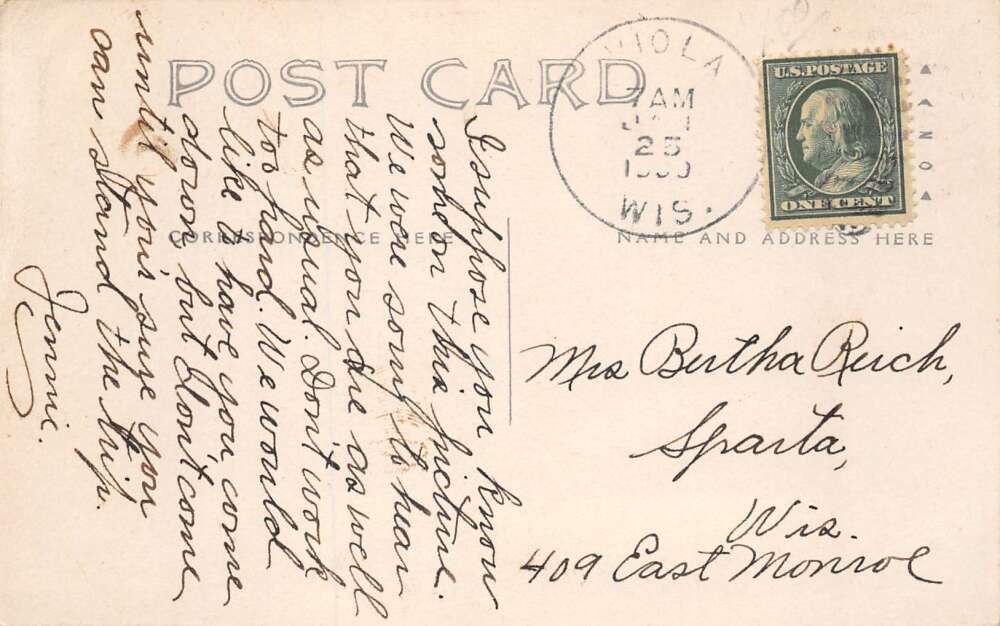 POST CARD
VIOLA
7 AM
JAN
25
WIS.
U.S. POSTAGE
ONE CENT
CORRESPONDENCE HERE
NAME AND ADDRESS HERE
I suppose you know
some on this picture.
We were sorry to hear
that you are as well
as usual. Don't work
too hard. We would
like to have you, come
down but don't come
until your sure you
can stand the trip.
Jennie.
Mrs Bertha Reich,
Sparta,
Wis.
409 East Monroe